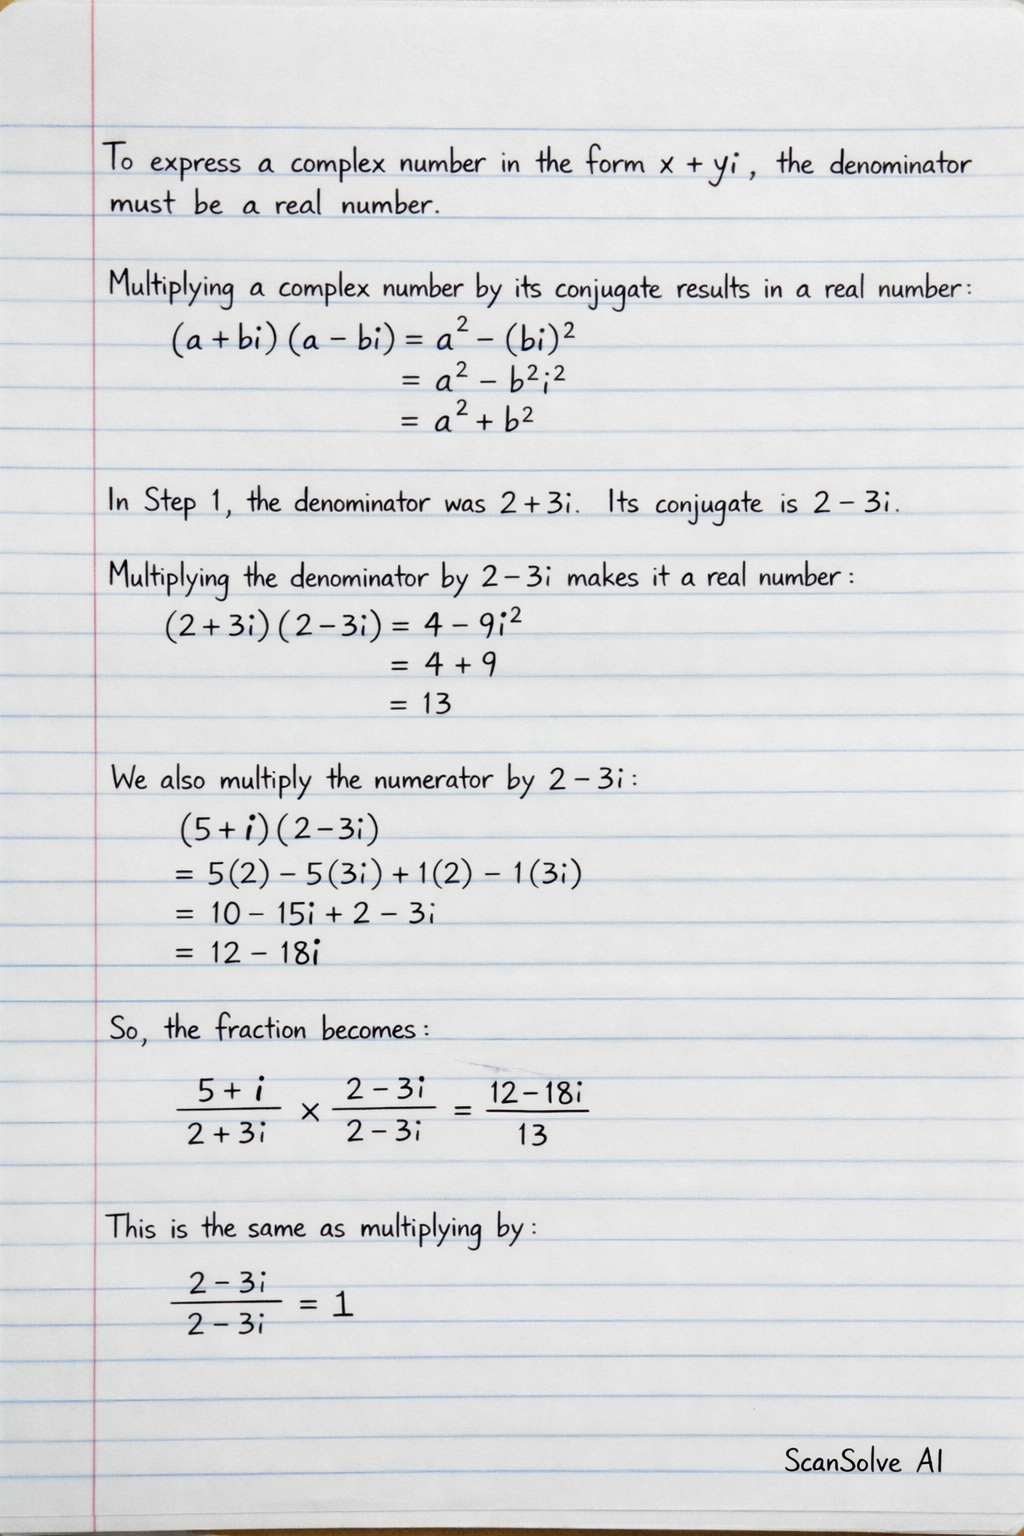 To express a complex number in the form x + yi, the denominator
must be a real number.
Multiplying a complex number by its conjugate results in a real number:
(a + bi) (a - bi) = a² - (bi)²
= a² - b²i²
= a² + b²
In Step 1, the denominator was 2 + 3i. Its conjugate is 2 - 3i.
Multiplying the denominator by 2 - 3i makes it a real number:
(2 + 3i) (2 - 3i) = 4 - 9i²
= 4 + 9
= 13
We also multiply the numerator by 2 - 3i:
(5 + i) (2 - 3i)
= 5(2) - 5(3i) + 1(2) - 1(3i)
= 10 - 15i + 2 - 3i
= 12 - 18i
So, the fraction becomes:
5 + i / 2 + 3i × 2 - 3i / 2 - 3i = 12 - 18i / 13
This is the same as multiplying by:
2 - 3i / 2 - 3i = 1
ScanSolve AI